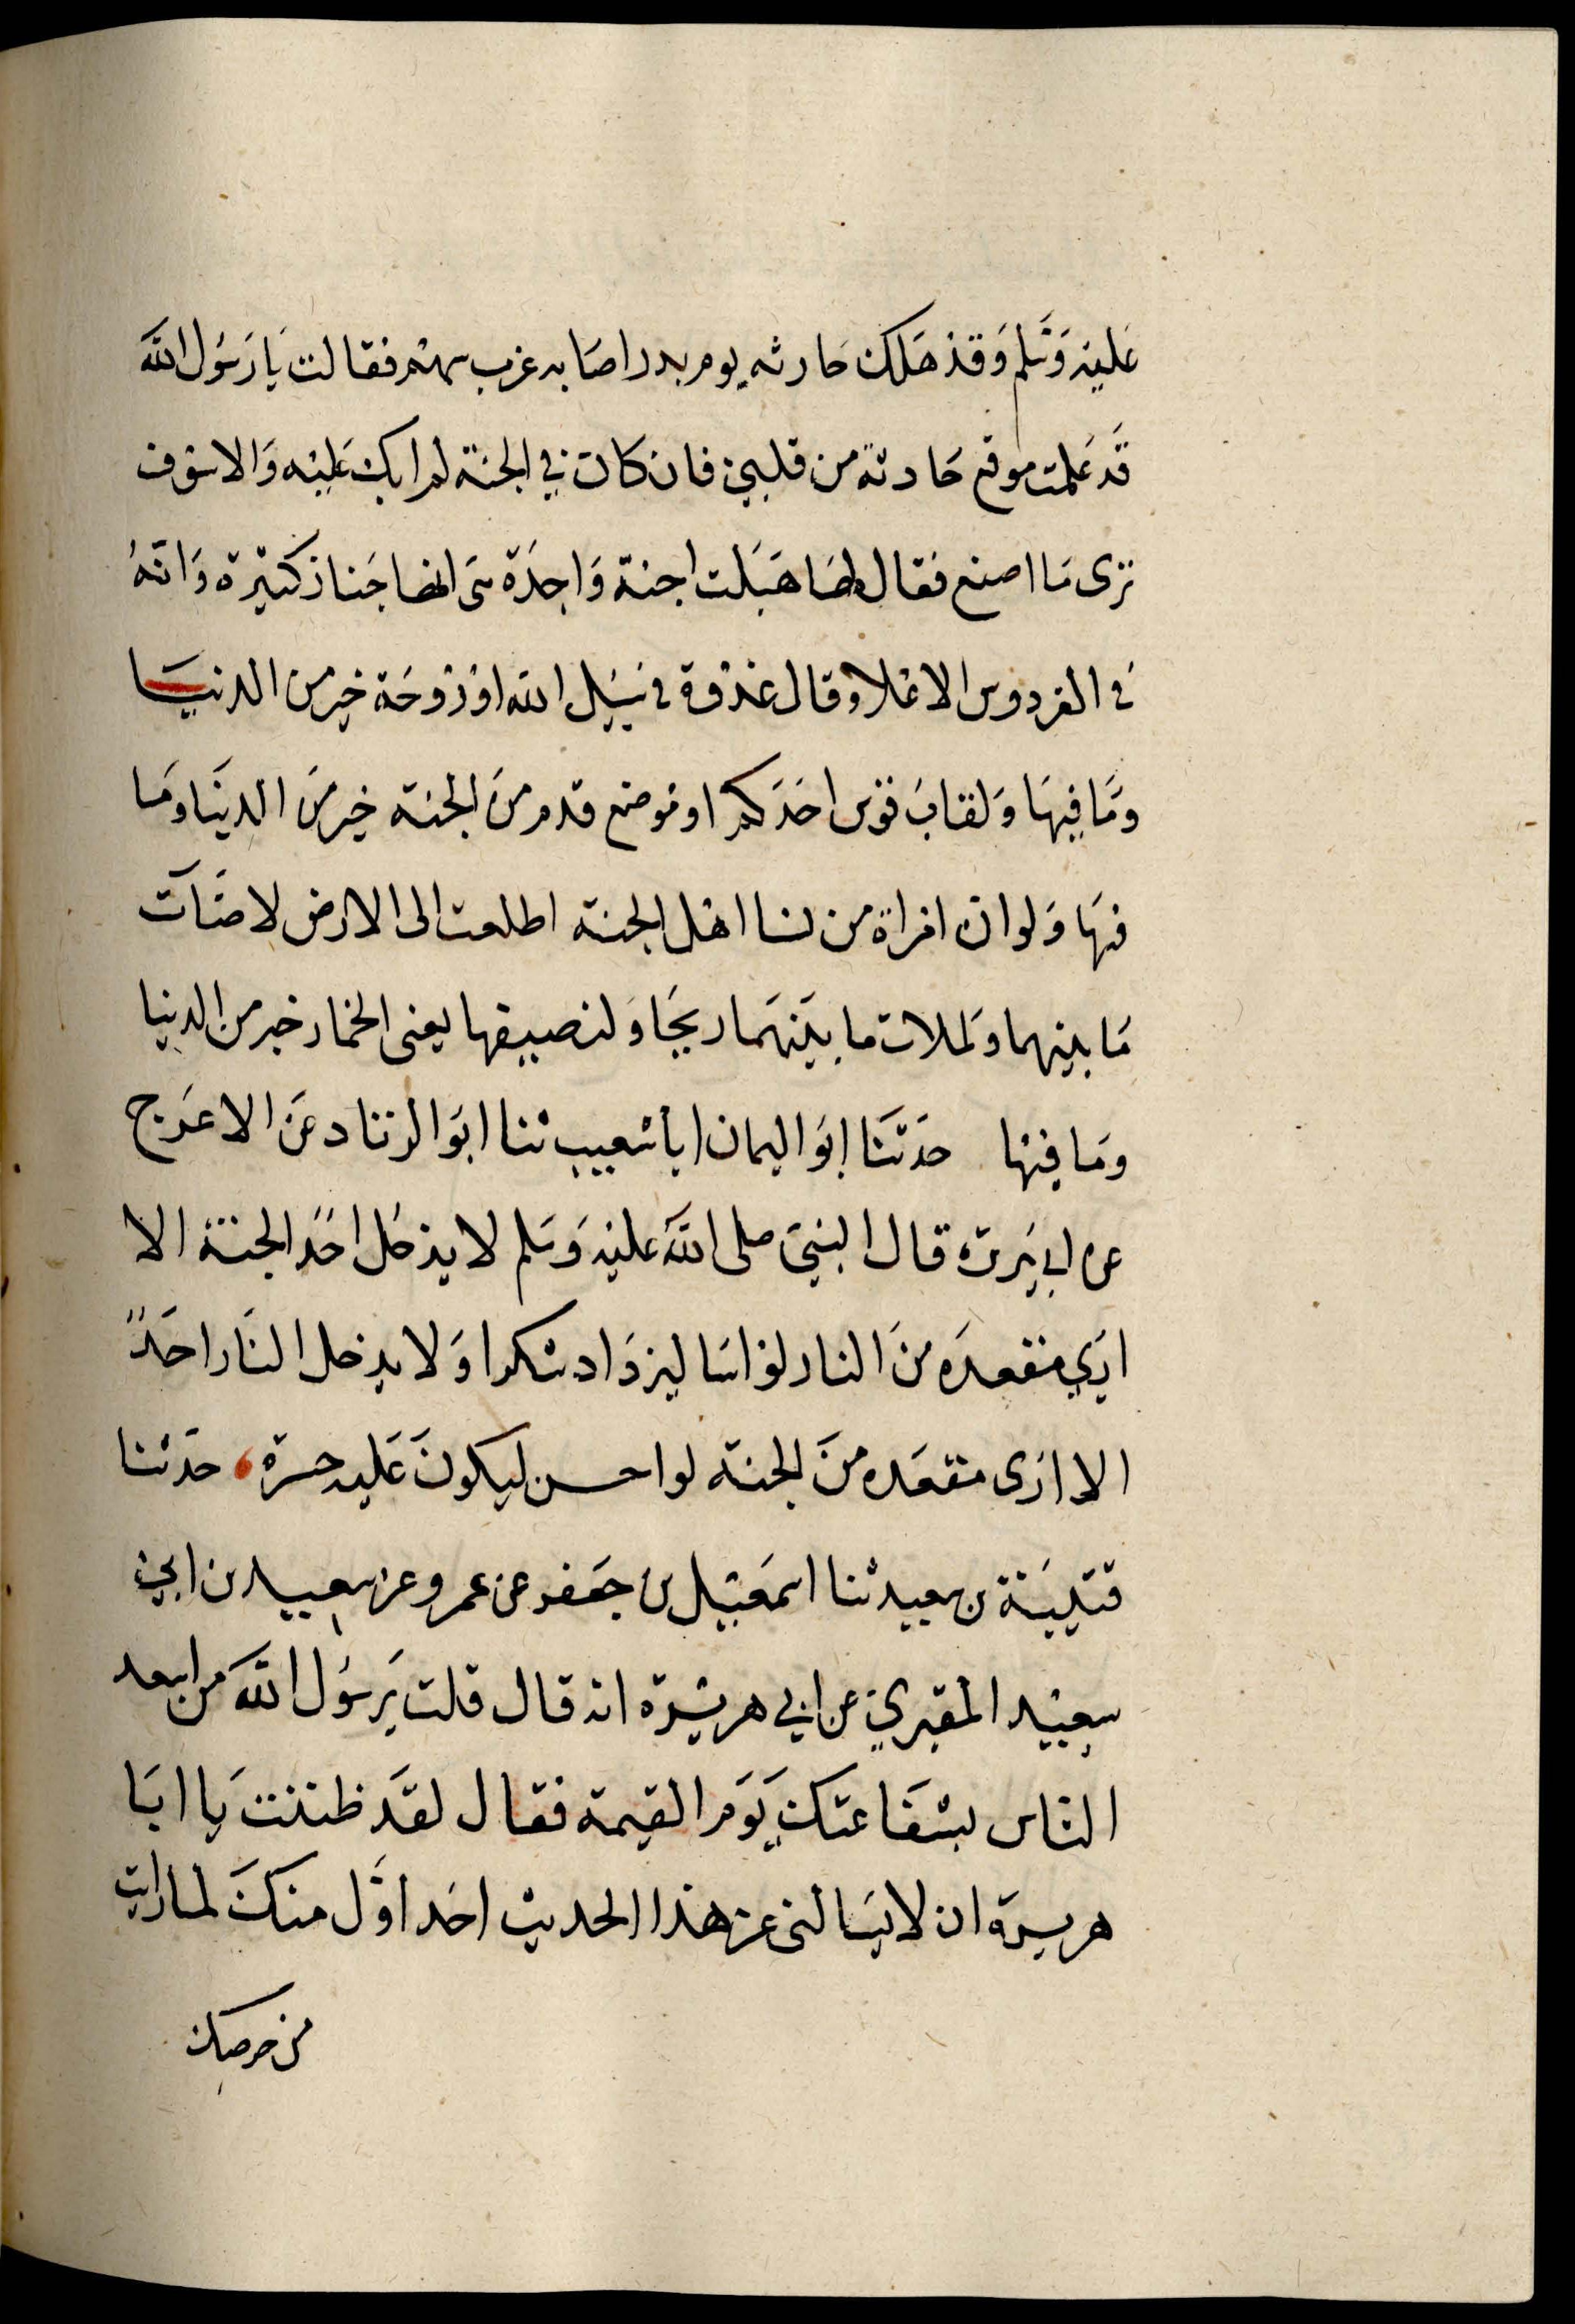 عَلَيْهِ وَسَلَّمَ وَقَدْ هَلَكَ حَارثه يوم بدر اصَابه غرب سهم فقالت يَا رَسُول اللَّه
قَد عَلمت موقع حَارثة من قلبي فان كان في الجنة لم ابك عَليْه وَالا سَوف
ترى مَا اصنع فقال لهَا هَبَلت اجنة وَاحِدَة هى انها جَنان كثيرة وَانّهُ
فى الفردوس الاعْلا وقال غدْوة فى سَبيل الله اوْ رَوحَة خير من الدنيَا
وَمَا فيهَا وَلقابَ قوْس احَدكم او مَوضع قدم مِنَ الجنة خير مِنَ الدنيَا ومَا
فيهَا وَلو ان امْراة من نسا اهْل الجنة اطلعت الى الارض لاضَآت
مَا بينهما وَلملات ما بيَنهَما ريحًا وَلنصيفها يعنى الخمار خير من الدنيا
ومَا فيْهَا حَدثنَا ابَو اليمان ابا شعيب ثنا ابَو الزناد عَن الاعَرج
عن ابي هريرة قال النبيّ صلى اللَّه عليْه وَسَلم لا يدْخل احَد الجنة الا
اري مقعدَه مِنَ النار لو اسَا ليزدَاد شكرا وَلا يدخل النَار احَدٌ
الا ارَى مقعَده مِنَ الجنة لو احسن ليكونَ عَليه حسرة، حَدثنا
قتيبَة بن سعيد ثنا اسمَعيْل بن جَعفر عن عمرو عن سعيد بن ابي
سعِيْد المقبري عن ابي هريْرة انه قال قلت يَرسُول اللَّه من اسعد
الناس بشفَاعتك يَوَم القيمة فقال لقَد ظننت يَا ابَا
هريرة ان لا يسَالنى عن هذا الحديث احَد اوَّل منكَ لما رايت
من حرصك